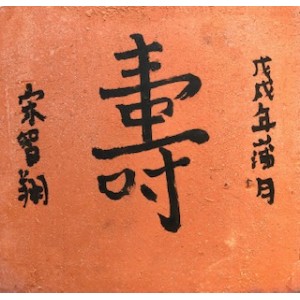 戊戌年蒲月
壽
宋智翔